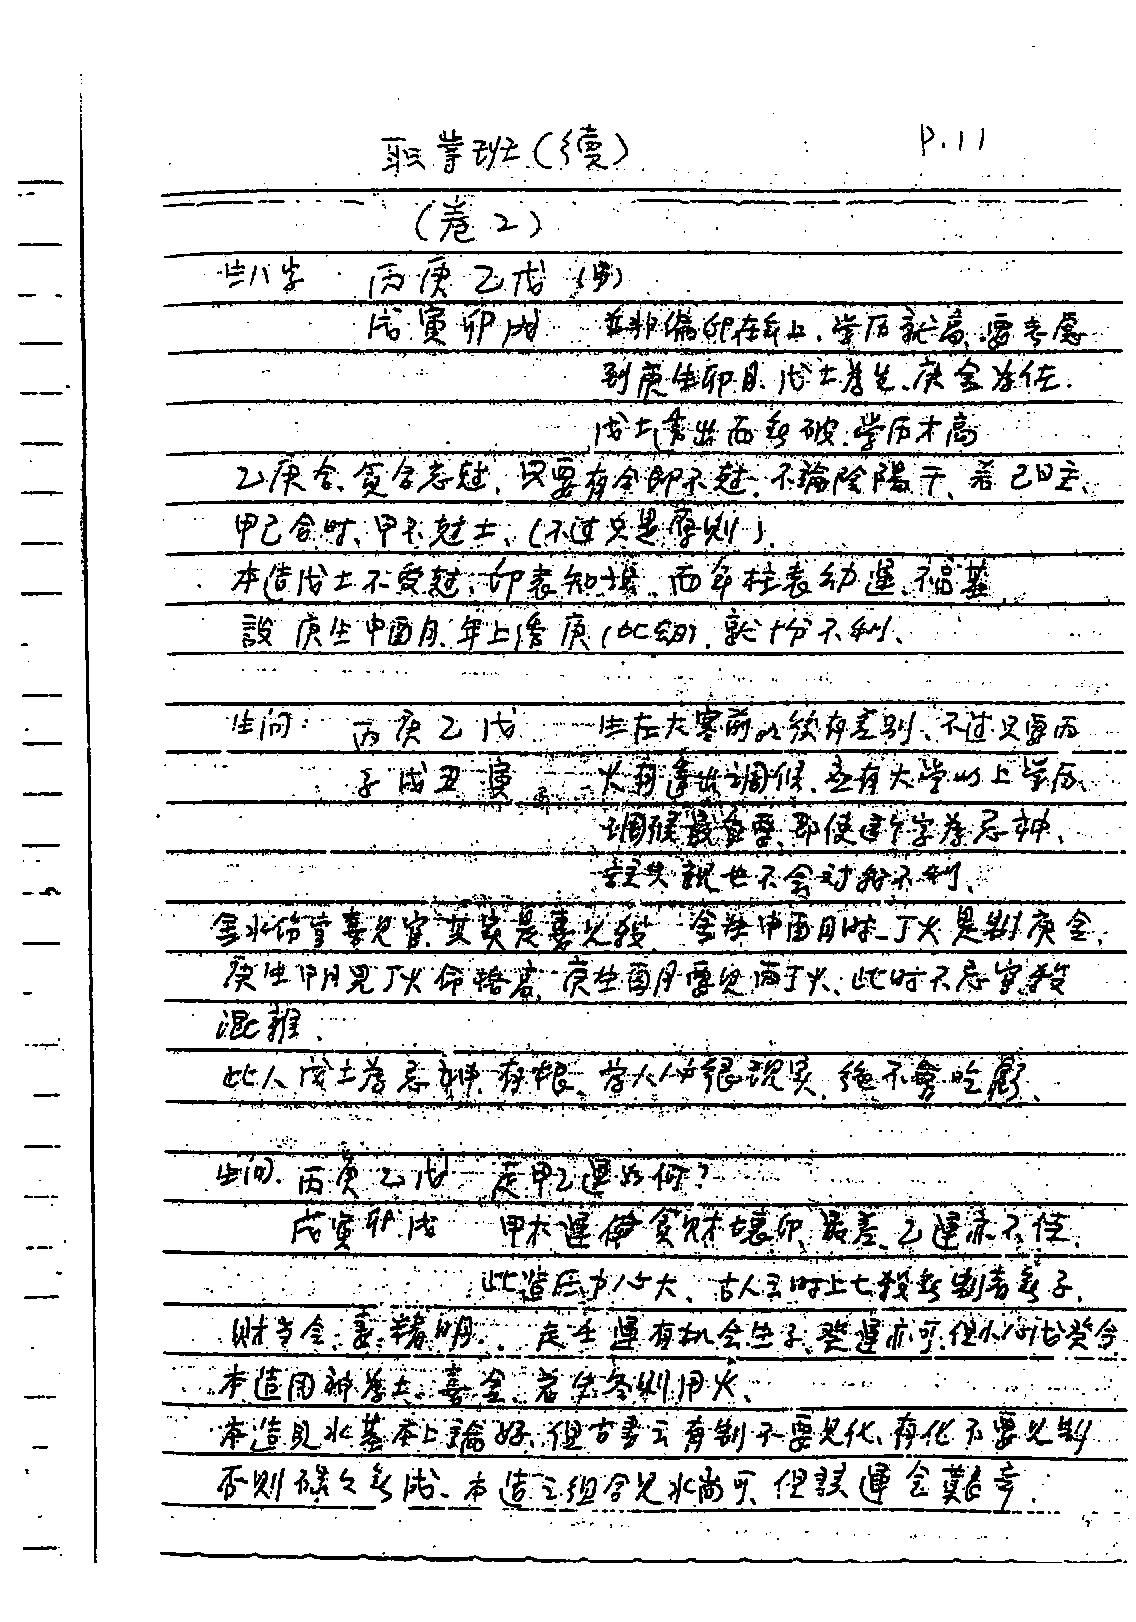 职業班(續) P.11
(卷2)
生八字 丙庚乙戊 (男)
戊寅卯戌 並非偏印在年上、学历就高、要考慮
到庚生卯月、戊土為先、庚金為佐.
戊土透出而無破、学历才高
乙庚合、貪合忘尅、只要有合即不尅、不論陰陽干、若己日主、
甲己合时、甲不尅土、(不过只是原則).
本造戊土不受尅、印表知識、而年柱表幼運、不忌甚
設庚生申酉月、年上透庚(比劫)、就十分不利、
生问: 丙庚乙戊 生在大寒前後有差別、不过只要丙
子戌丑寅 火有透出調候、應有大学以上学历、
調候最重要、即使這个字為忌神、
其親也不会对我不利、
金水伤官喜見官、其实是喜見殺、金生申酉月时、丁火是制庚金、
庚生申月見丁火命格高、庚生酉月要見丙丁火、此时不忌官殺
混雜、
此人戊土為忌神、有根、為人必很現实、絕不會吃虧、
生问、丙庚乙戊 走甲乙運如何?
戊寅卯戌 甲木運使貪财壞印、最差、乙運亦不佳、
此造压力必大、古人云时上七殺無制者無子、
财当令、妻精明、走壬運有机会生子、癸運亦可、但小心戊癸合
本造用神為土、喜金、若生冬則用火、
本造見水基本上論好、但古書云有制不要見化、有化不要見制
否則碌々無成、本造之組合見水尚可、但該運会艱辛.